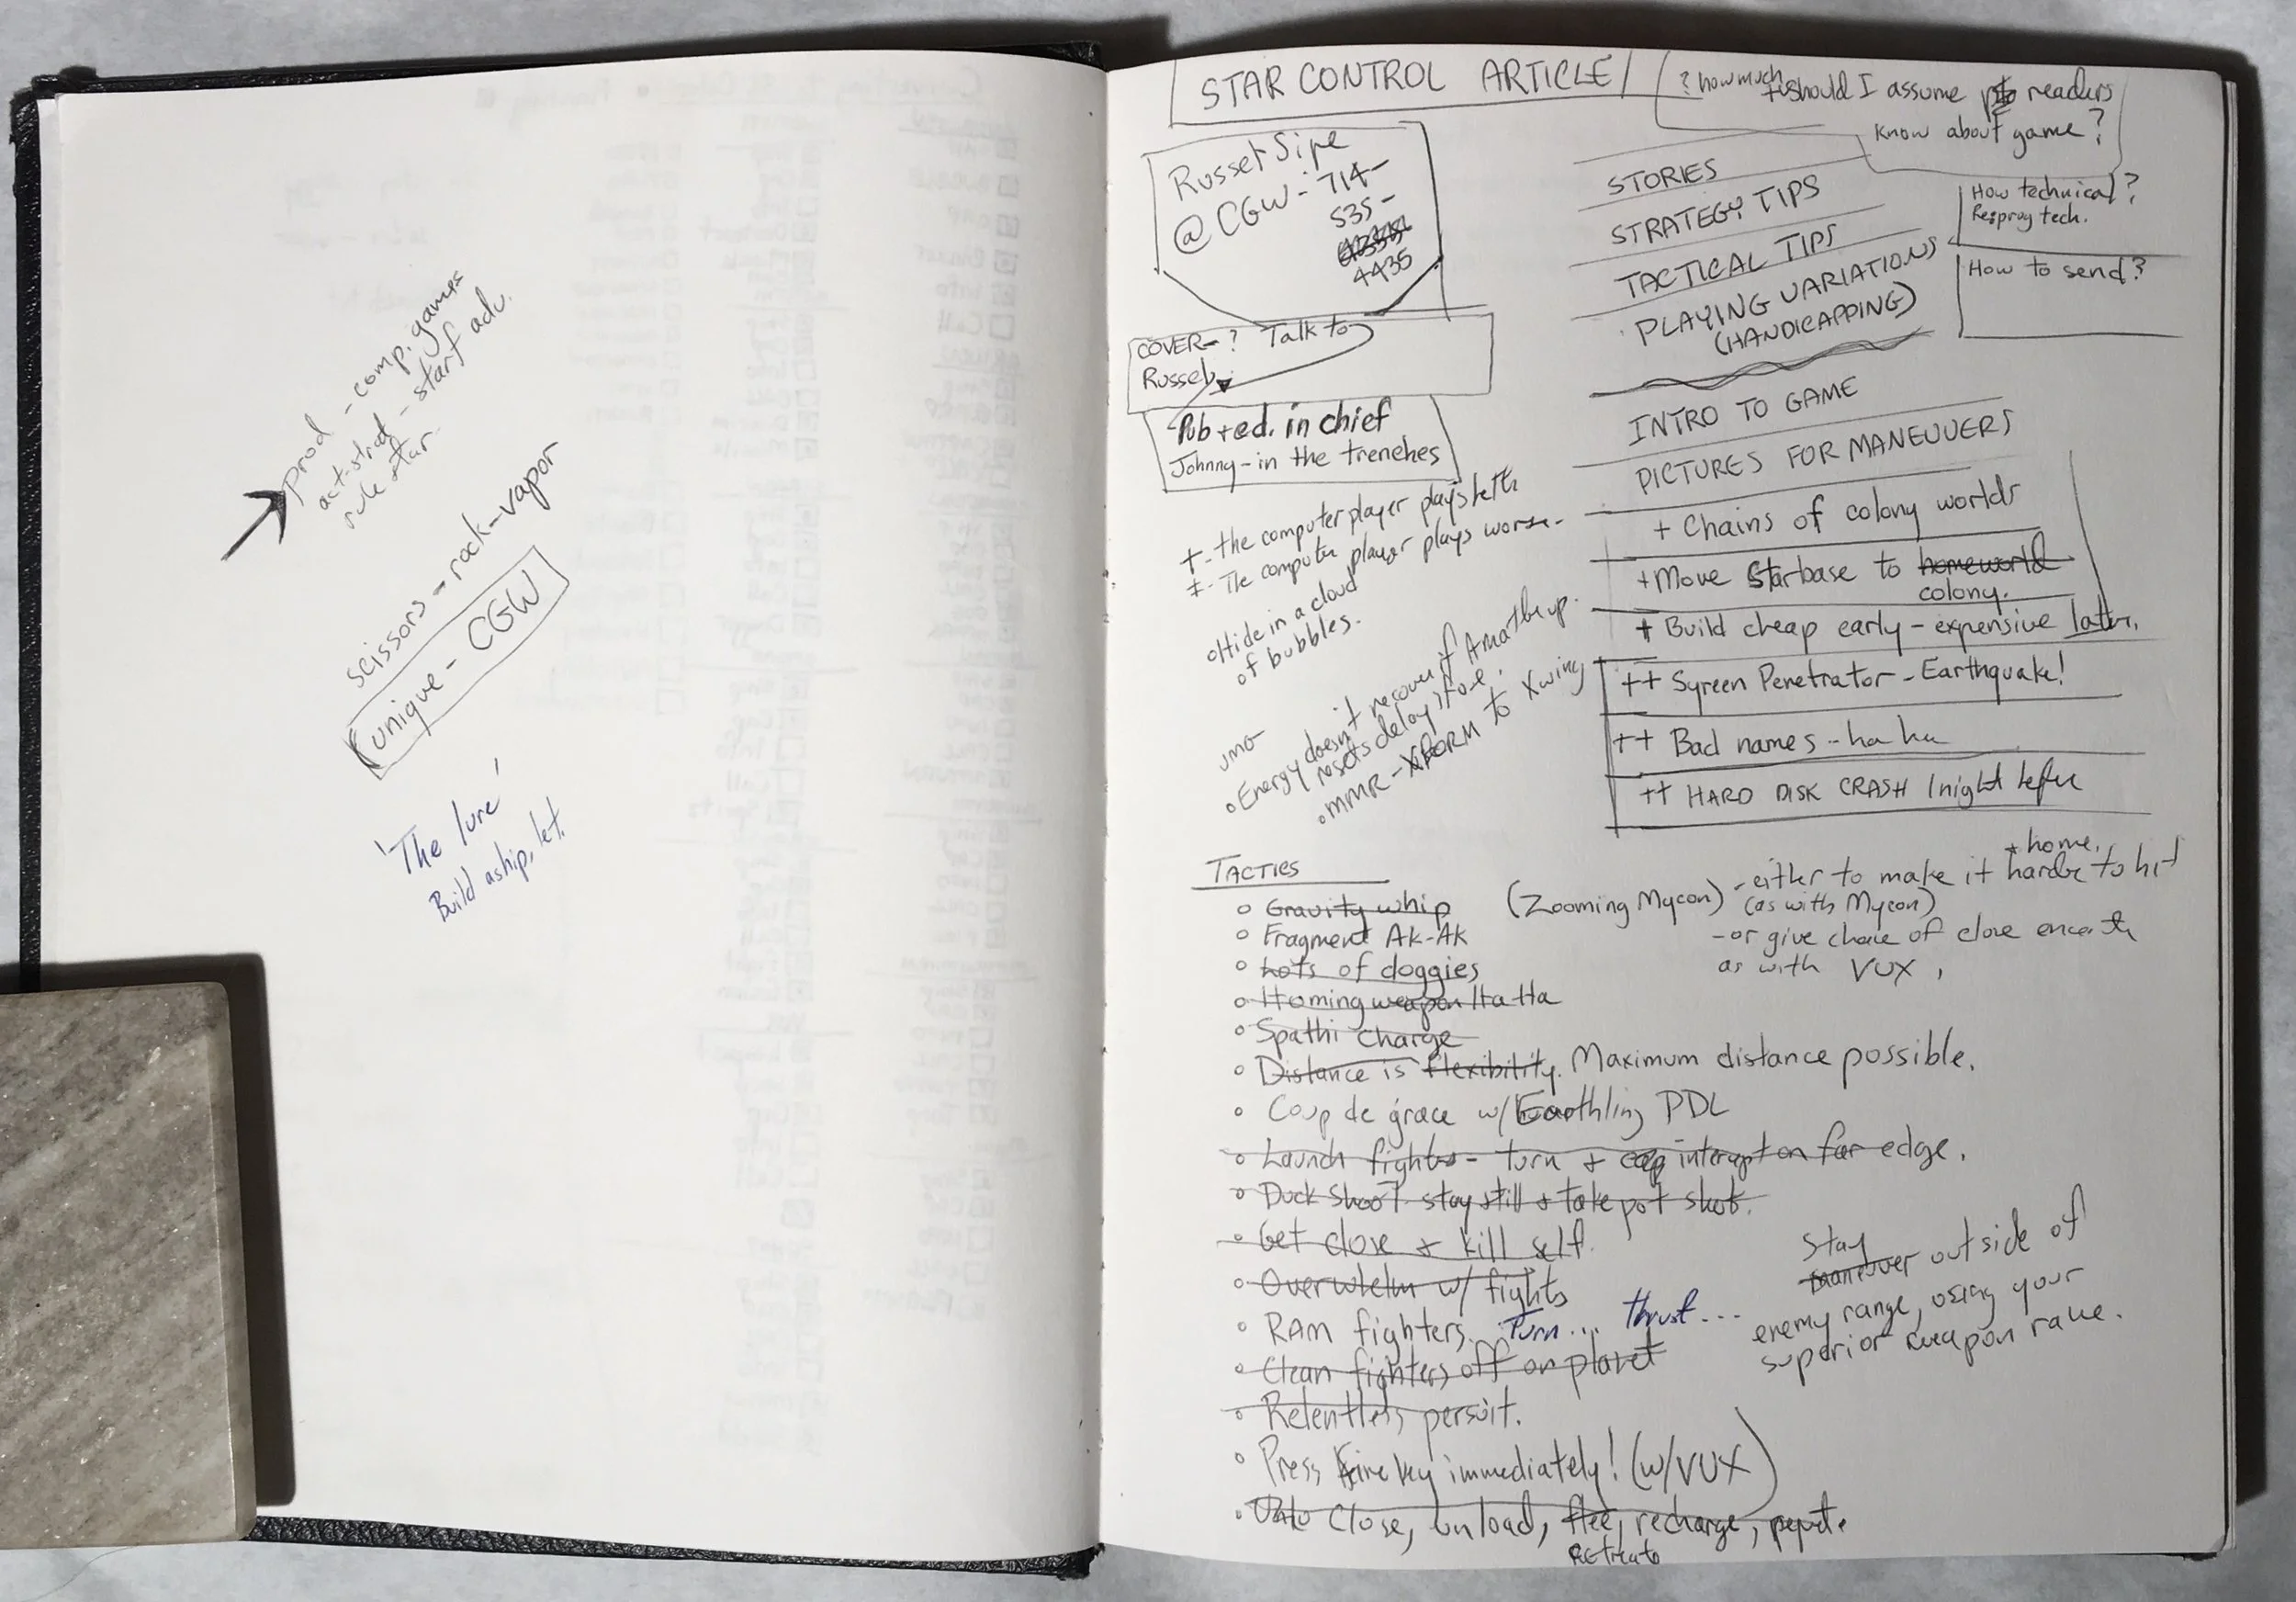 prod - comp. games
act-strat - start adv.
rule star
scissors - rock - vapor
unique - CGW
'The lure'
Build a ship, let.
STAR CONTROL ARTICLE
? how much should I assume readers
know about game?
Russel Sipe
@ CGW - 714-
535-
4435
COVER - ? Talk to
Russel
Pub + ed. in chief
Johnny - in the trenches
STORIES
STRATEGY TIPS
TACTICAL TIPS
PLAYING VARIATIONS
(HANDICAPPING)
How technical?
tech.
How to send?
INTRO TO GAME
PICTURES FOR MANEUVERS
+ Chains of colony worlds
+ Move Starbase to homeworld
colony.
+ Build cheap early - expensive later.
++ Syreen Penetrator - Earthquake!
++ Bad names - ha ha
++ HARD DISK CRASH 1 night before
+ - the computer player plays
+ - The computer player plays worse -
o Hide in a cloud
of bubbles.
UMG
o Energy doesn't recover if
resets delay
o MMR - XFORM to Xwing
TACTICS
o Gravity whip (Zooming Mycon) - either to make it harder to hit
* home.
(as with Mycon)
o Fragment Ak-Ak - or give chance of close
as with VUX,
o Lots of doggies
o Homing weapon Ha Ha
o Spathi Charge
o Distance is flexibility. Maximum distance possible.
o Coup de grace w/ Earthling PDL
o Launch fighters - turn + intercept on far edge.
o Duck shoot. stay still + take pot shots.
o Get close + kill self.
o Overwhelm w/ fights
o RAM fighters. Turn... thrust...
o Clean fighters off on planet
o Relentless persuit.
Stay
maneuver outside of
enemy range, using your
superior weapon range.
o Press Fire key immediately! (w/VUX)
o Close, unload, flee, recharge, repeat.
retreat